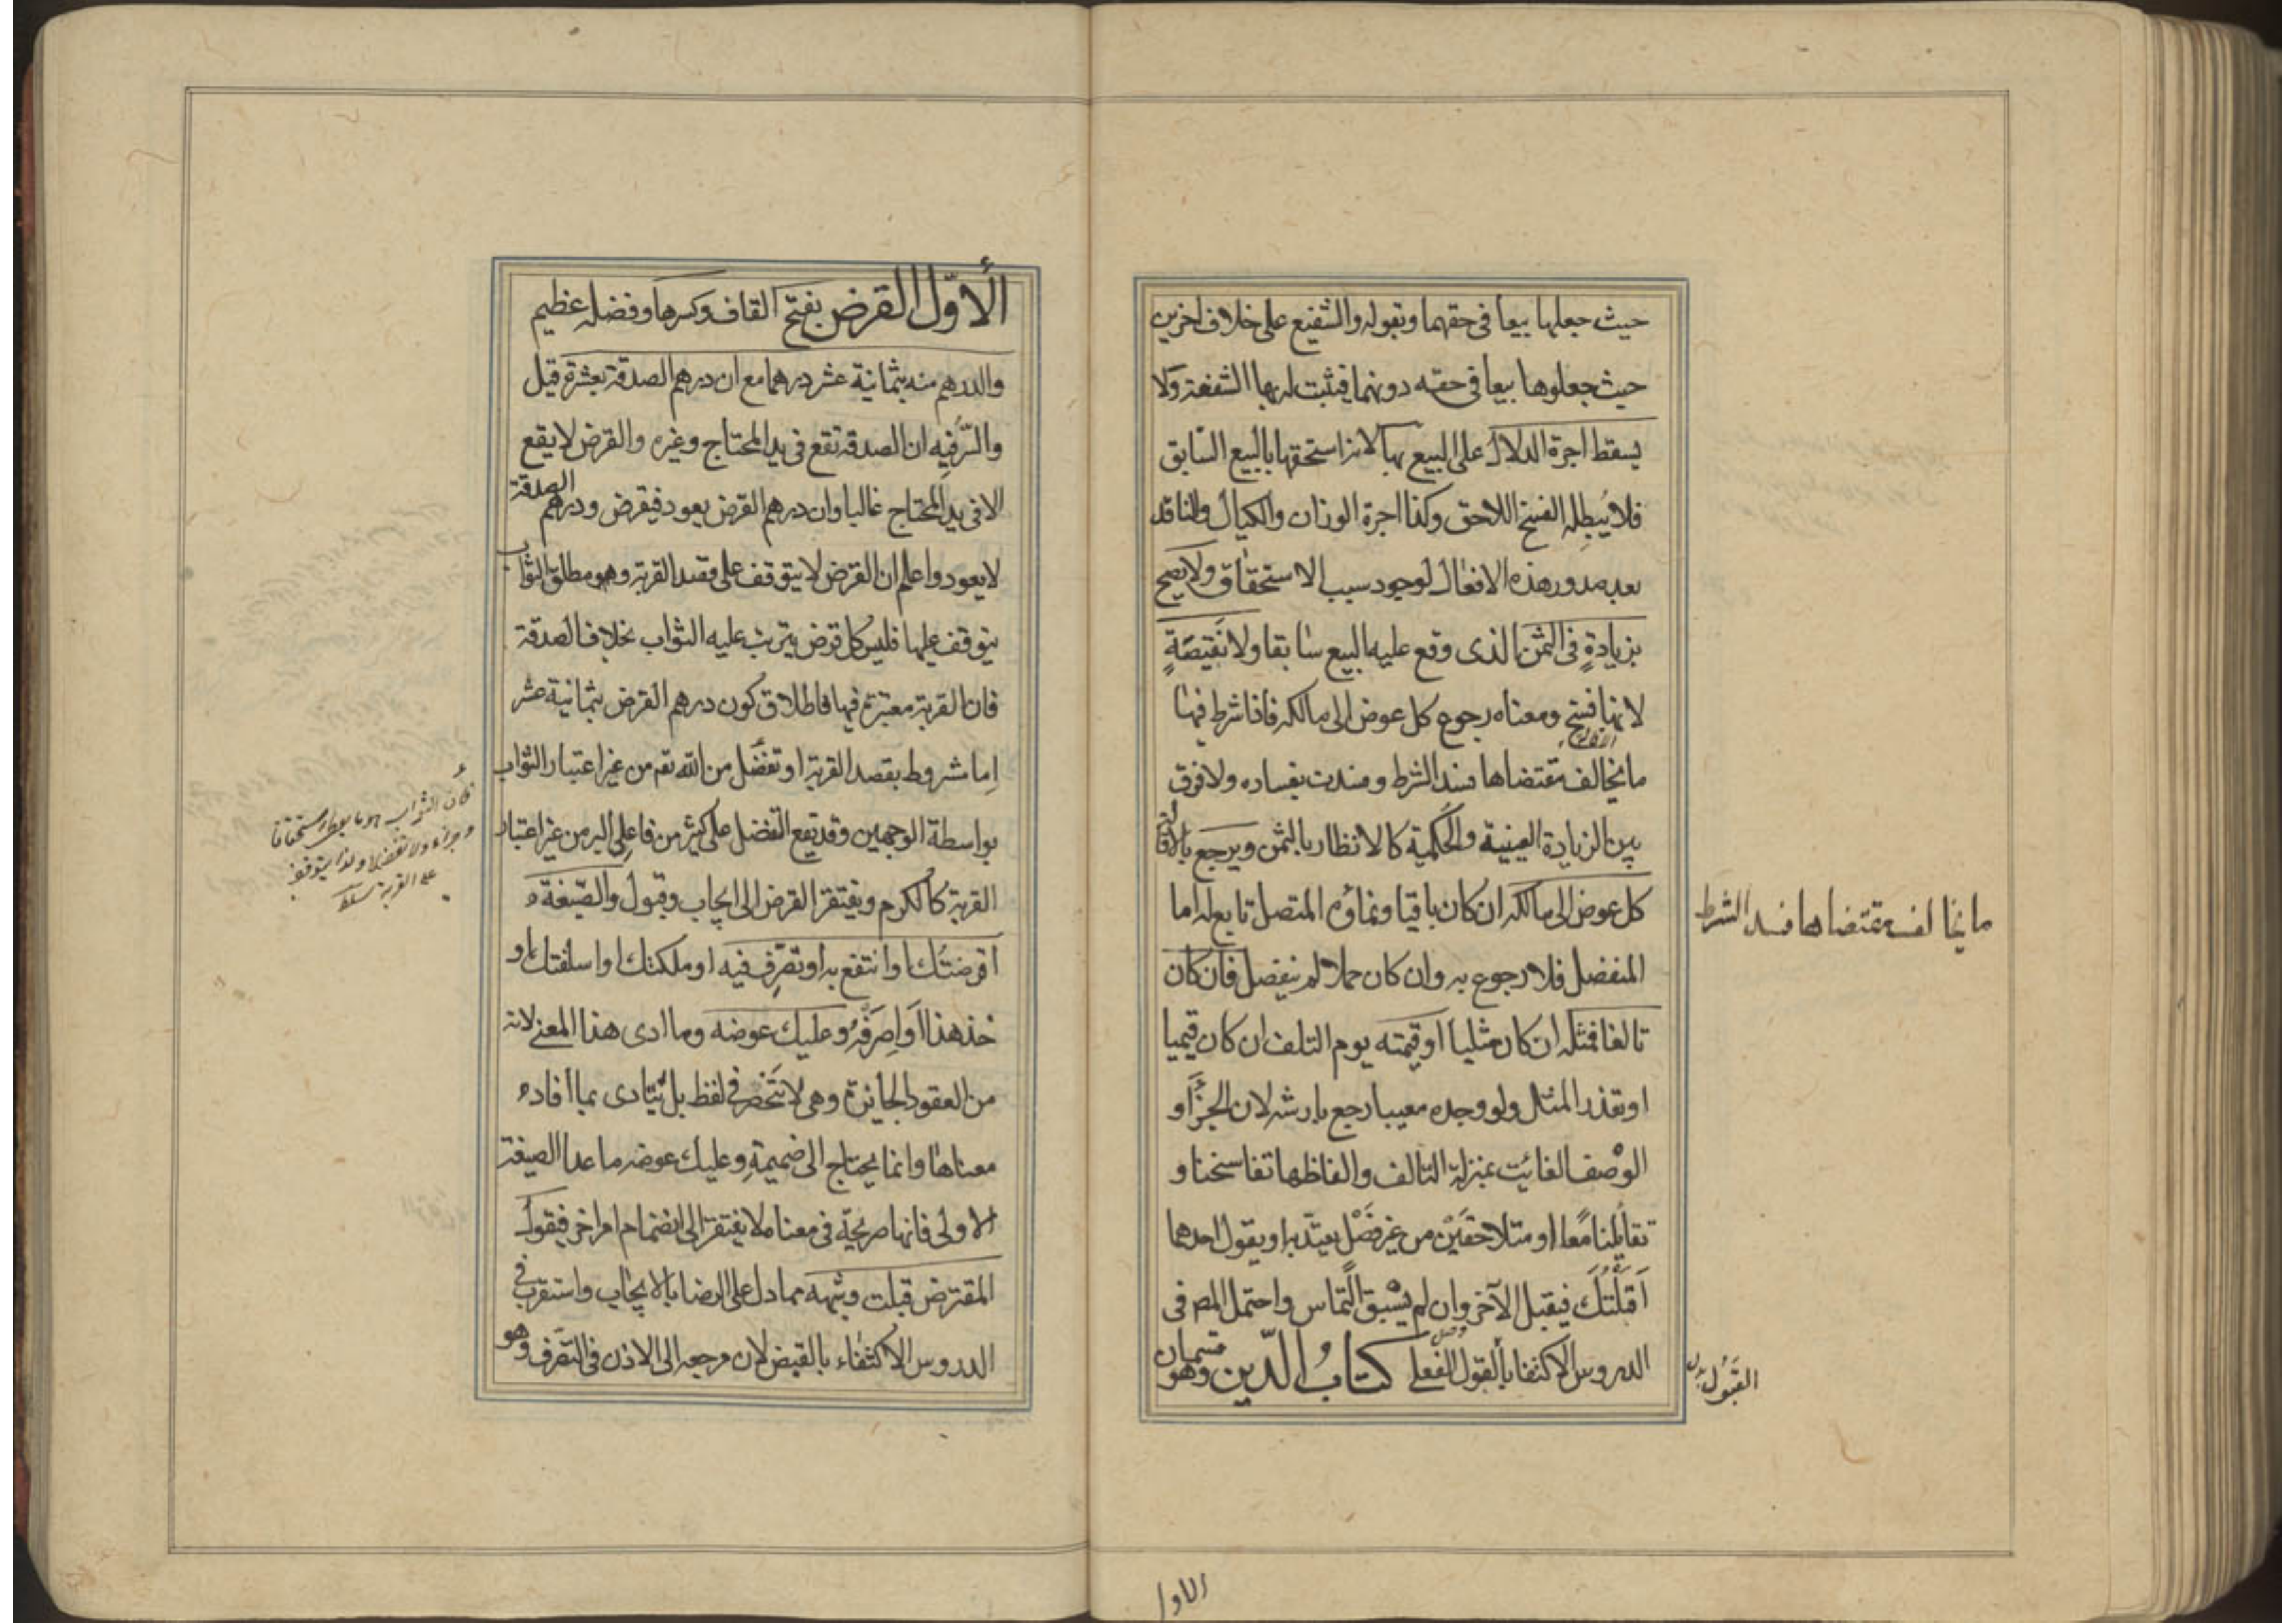 حيث جعلها بيعا فى حقهما وبقوله والشفيع على خلاف اخرين
حيث جعلوها بيعا فى حقه دونهما فيثبت له بها الشفعة ولا
يسقط اجرة الدلال على البيع بها لانه استحقها بالبيع السّابق
فلا يُبطِله الفسخ اللاحق وكذا اجرة الوزان والكيال والناقد
بعد صدور هذه الافعال لوجود سبب الاستحقاق ولا يصح
بزيادةٍ فى الثمن الذى وقع عليه البيع سابقا ولا نَقيصَةٍ
لانها فسخ ومعناه رجوع كل عوض الى مالكه فاذا شرط فيها
الاقالة
ما يخالف مقتضاها فسد الشرط وفسدت بفساده ولا فرق
بين الزيادة العينية والحُكمية كالانظار بالثمن ويرجع بالاقالة
كل عوض الى مالكه ان كان باقيا ونماؤه المتصل تابع له اما
المنفصل فلا رجوع به وان كان حملا لم ينفصل فان كان
تالفا فمثله ان كان مثليا او قيمته يوم التلف ان كان قيميا
او تعذر المثل ولو وجده معيبا رجع بارشه لان الجزء او
الوصف الفائت بمنزلة التالف والفاظها تفاسخنا و
تقايلنا معًا او متلاحقَيْن من غير فَصْل يعتدّ به او يقول احدهما
اَقَلْتُكَ فيقبل الآخر وان لم يسْبق التماس واحتمل المص فى
الدروس الاكتفا بالقول الفعلى كتابُ الدّين وهو قسمان
ما يخالف مقتضاها فسد الشرط
القَبُول
الاول
الأوّل القرض بفتح القاف وكسرها وفضله عظيم
والدرهم منه بثمانية عشر درهما مع ان درهم الصدقة بعشرة قيل
والسّر فيه ان الصدقة تقع فى يد المحتاج وغيره والقرض لا يقع
الا فى يد المحتاج غالبا وان درهم القرض يعود فيقرض ودرهم الصدقة
لا يعود واعلم ان القرض لا يتوقف على قصد القربة وهو مطلق الثواب
يتوقف عليها فليس كل قرض يترتب عليه الثواب بخلاف الصدقة
فان القربة معتبرة فيها فاطلاق كون درهم القرض بثمانية عشر
اِما مشروط بقصد القربة او تفضّل من الله تع من غير اعتبار الثواب
بواسطة الوجهين وقد يقع التفضل على كثير من فاعلى البر من غير اعتبار
القربة كالكرم ويفتقر القرض الى ايجاب وقبول والصّيغة
اقرضتُك او انتفع به او تصَرّف فيه او ملكتك او اسلفتك او
خذ هذا اَو اصرفْه وعليك عوضه وما ادى هذا المعنى لانه
من العقود الجائزة وهى لا تنَحصر فى لفظ بل تتادى بما افاده
معناها وانما يحتاج الى ضميمةِ وعليك عوضه ما عدا الصيغة
الاولى فانها صريحة فى معناه لا يفتقر الى انضمام امر اخر فيقول
المقترض قبلت وشبهه مما دل على الرضا بالايجاب واستقرب فى
الدروس الاكتفاء بالقبض لان مرجعه الى الاذن فى التصّرف وهو
لأن الثواب هو ما يعطى استحقاقا
وجزاء ولا تفضلا ولذا يتوقف
على القربة